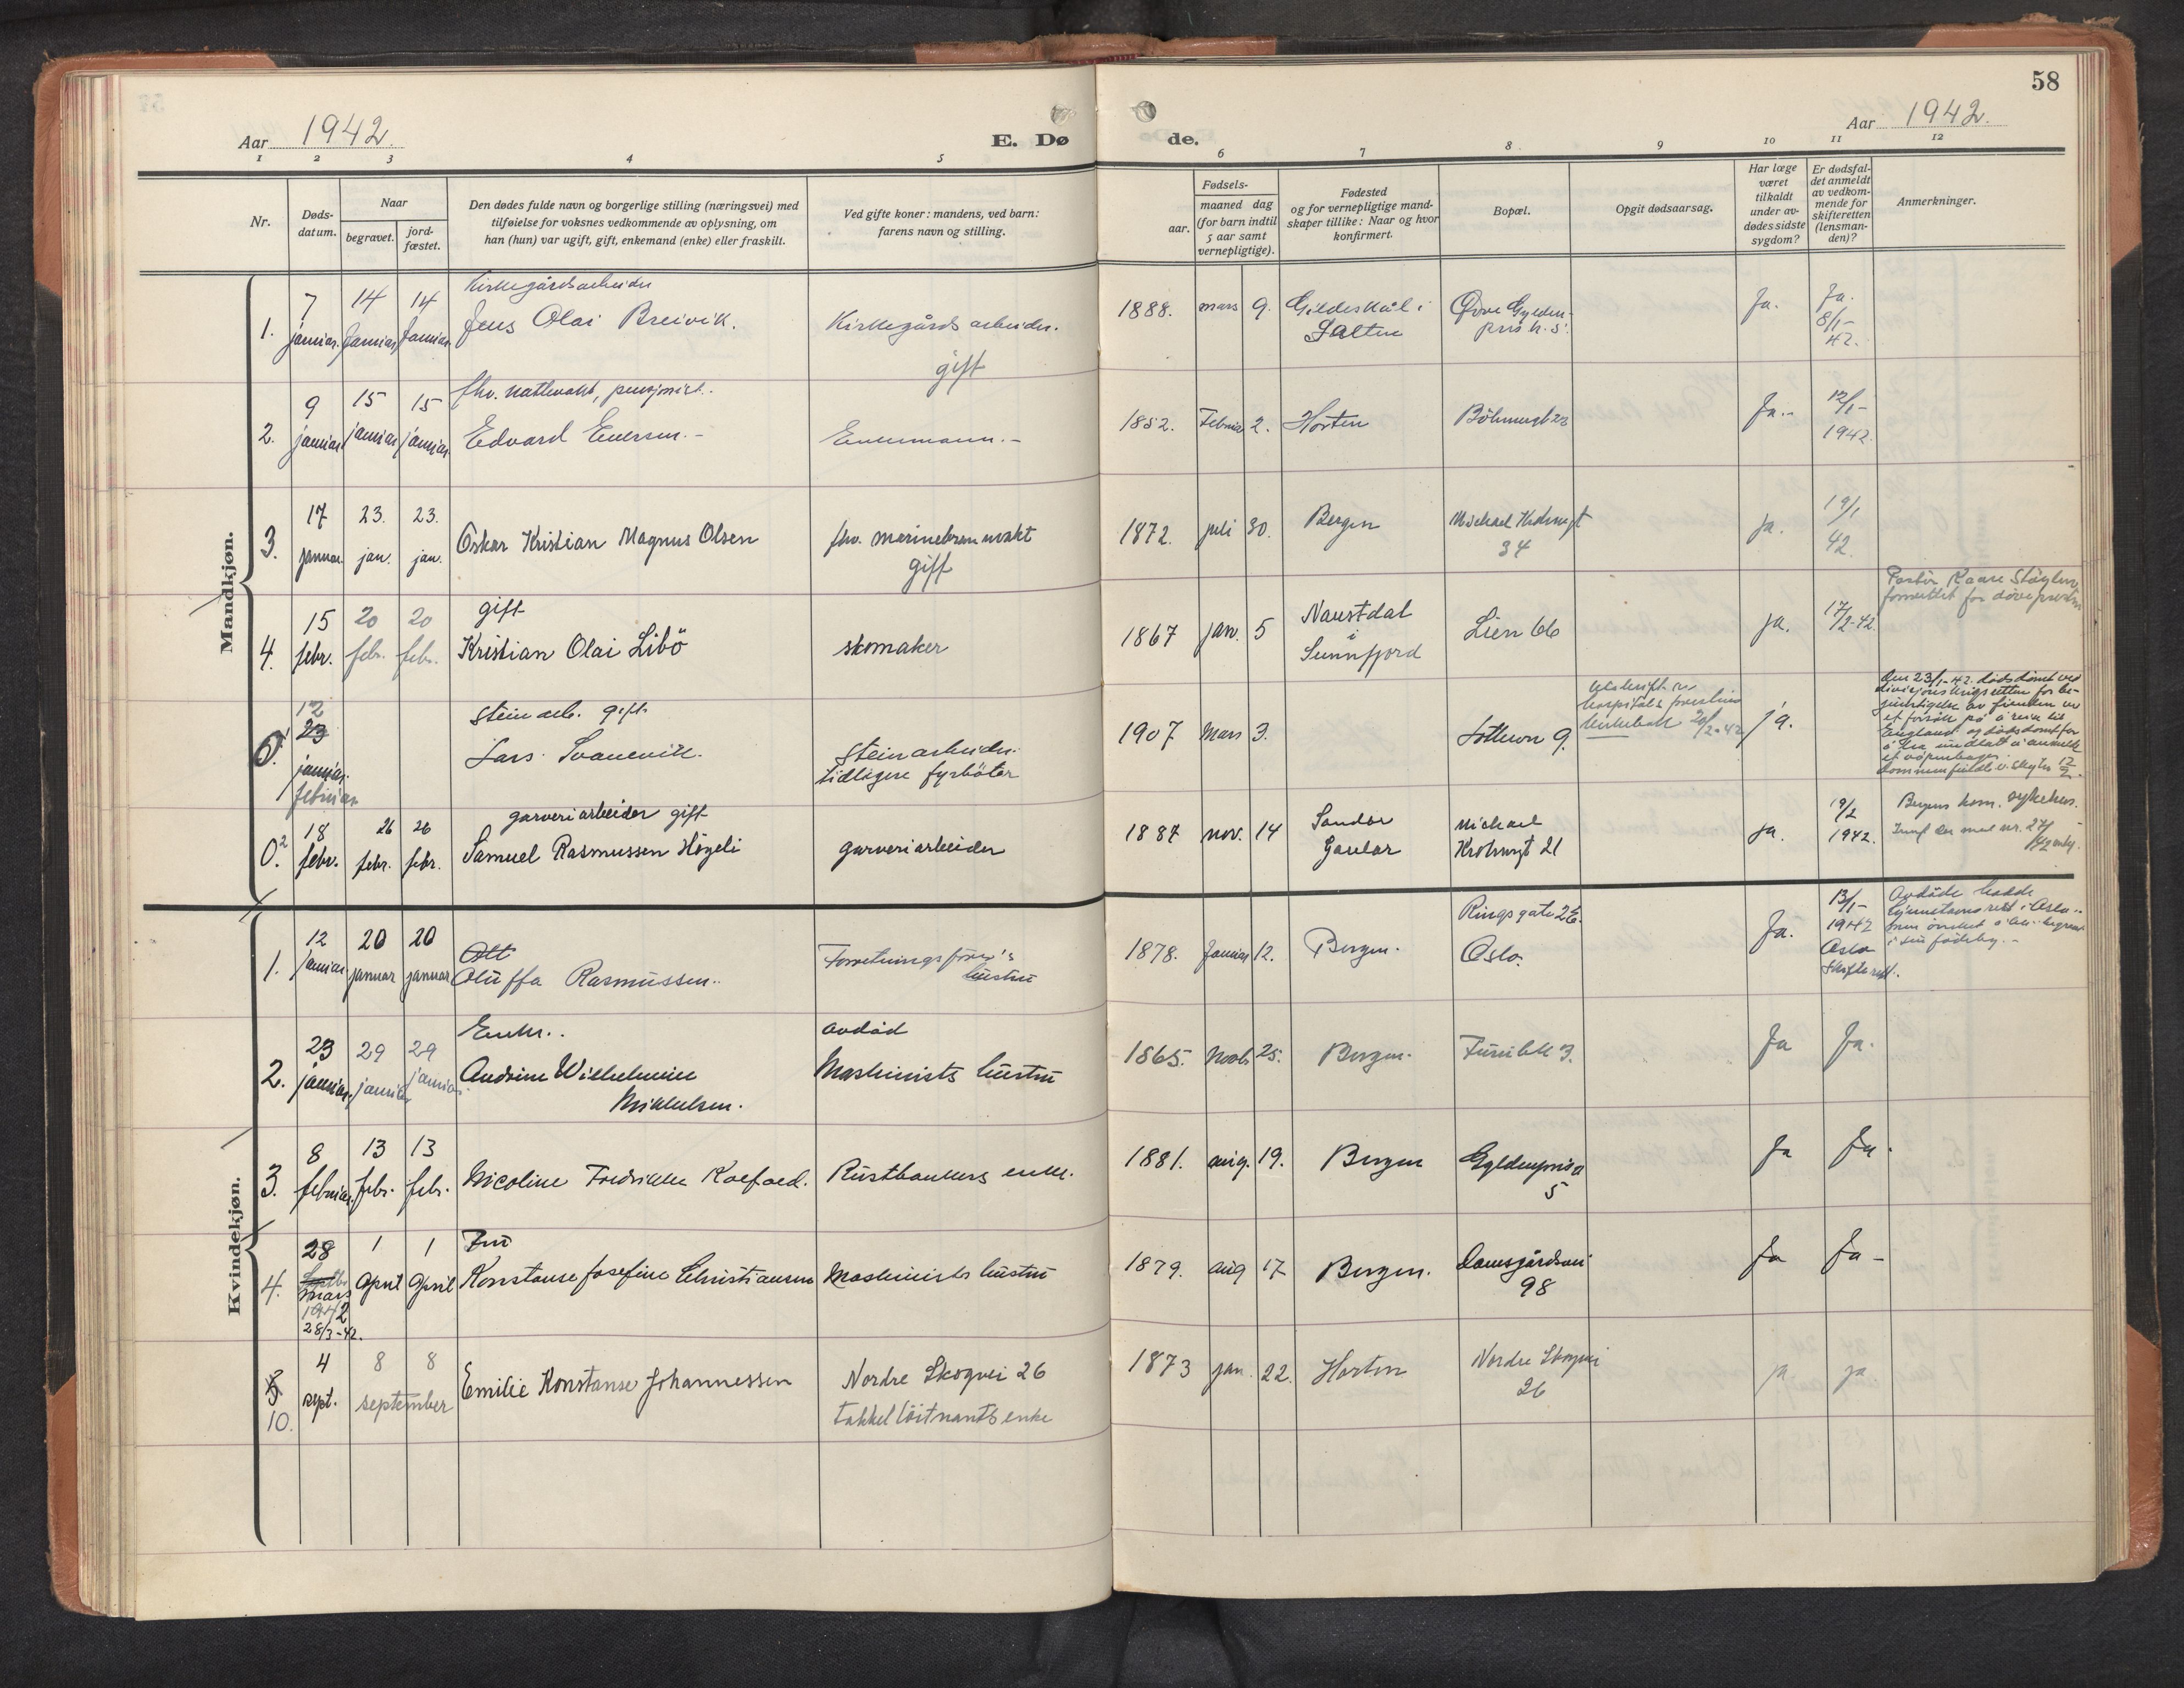 58
Aar 1942.
E. Dø
de.
Aar 1942.
1 2 3 4 5 6 7 8 9 10 11 12
Nr.
Døds-
datum.
Naar
begravet.
jord-
fæstet.
Den dødes fulde navn og borgerlige stilling (næringsvei) med
tilføielse for voksnes vedkommende av oplysning, om
han (hun) var ugift, gift, enkemand (enke) eller fraskilt.
Ved gifte koner: mandens, ved barn:
farens navn og stilling.
Fødsels-
aar.
maaned dag
(for barn indtil
5 aar samt
vernepligtige).
Fødested
og for vernepligtige mand-
skaper tillike: Naar og hvor
konfirmert.
Bopæl.
Opgit dødsaarsag.
Har læge
været
tilkaldt
under av-
dødes sidste
sygdom?
Er dødsfal-
det anmeldt
av vedkom-
mende for
skifteretten
(lensman-
den)?
Anmerkninger.
Mandkjøn.
1. 7 januar. 14 Januar 14 Januar
Kirkegårdsarbeider
Jens Olai Breivik.
Kirkegårdsarbeider.
gift
1888. mars 9.
Gildeskål i
Salten
Øvre Gylden-
pris
Ja.
Ja.
8/1-
42.
2. 9 januar 15 januar 15 januar
fhv. nattevakt, pensjonist.
Edvard Evensen.-
Enkemann.-
1852. Februar 2.
Horten
Böhmergt 23
Ja.-
12/1-
1942.
3. 17 januar. 23. jan. 23. jan.
Oskar Kristian Magnus Olsen
fhv. marinebrannvakt
gift
1872. juli 30.
Bergen
Michael Krohnsgt
34
ja.
19/1
42.
4. 15 febr. 20 febr. 20 febr.
gift
Kristian Olai Libö
skomaker
1867 jan. 5
Naustdal
i
Sunnfjord
Lien 66
ja.
17/2-42.
Pastor Kaare
forrettet for dövepresten
0.1 12 23 januar. februar
steinarb. gift
Lars Svanevik.
Steinarbeider.
tidligere fyrböter
1907 Mars 3.
9.
20/2-42
ja.
Den 23/1-42. dödsdömt ved
divisjonskrigsretten for be-
gunstigelse av fienden ved
et forsök på å reise til
England og dödsdömt for
å ha unnlatt å anmelde
et våpenlager.
12/2.
0.2 18 febr. 26 febr. 26 febr.
garveriarbeider gift
Samuel Rasmussen Högeli
garveriarbeider
1887 nov. 14
Sandar
Gaular
Michael
Krohnsgt 21
ja.
19/2
1942.
Bergens kom. sykehus.
Kvindekjøn.
1. 12 januar 20 januar 20 januar
Oluffa Rasmussen..
Forretningsförer's
hustru
1878. Januar 12.
Bergen.
Ringsgate 2E.
Oslo.
Ja.
13/1-
1942
Oslo
skifterett.
Avdöde hadde
hjemstavnsrett i Oslo..
men önsket å bli begravet
i sin födeby.-
2. 23 januar. 29 januar 29 januar
Enke..
Andrine Wilhelmine
Mikkelsen.
avdöd
Maskinists hustru
1865. Novbr 25.
Bergen.
3.
Ja
Ja.
3. 8 februar. 13 febr. 13 febr.
Nicoline Fredrikke Koefoed.
Rustbankers enke.
1881. aug. 19.
Bergen
Gyldenpris a
5
Ja
Ja.
4. 28 mars 1942 28/3-42. 1 April 1 April
Fru
Konstanse Josefine Christiansen
Maskinists hustru
1879. aug 17
Bergen.
Damsgårdsvei
98
Ja
Ja-
10. 4 sept. 8 8 september
Emilie Konstanse Johannessen
Nordre Skogvei 26
takkellöitnants enke
1873 jan. 22.
Horten
Nordre Skogvei
26
ja
ja.